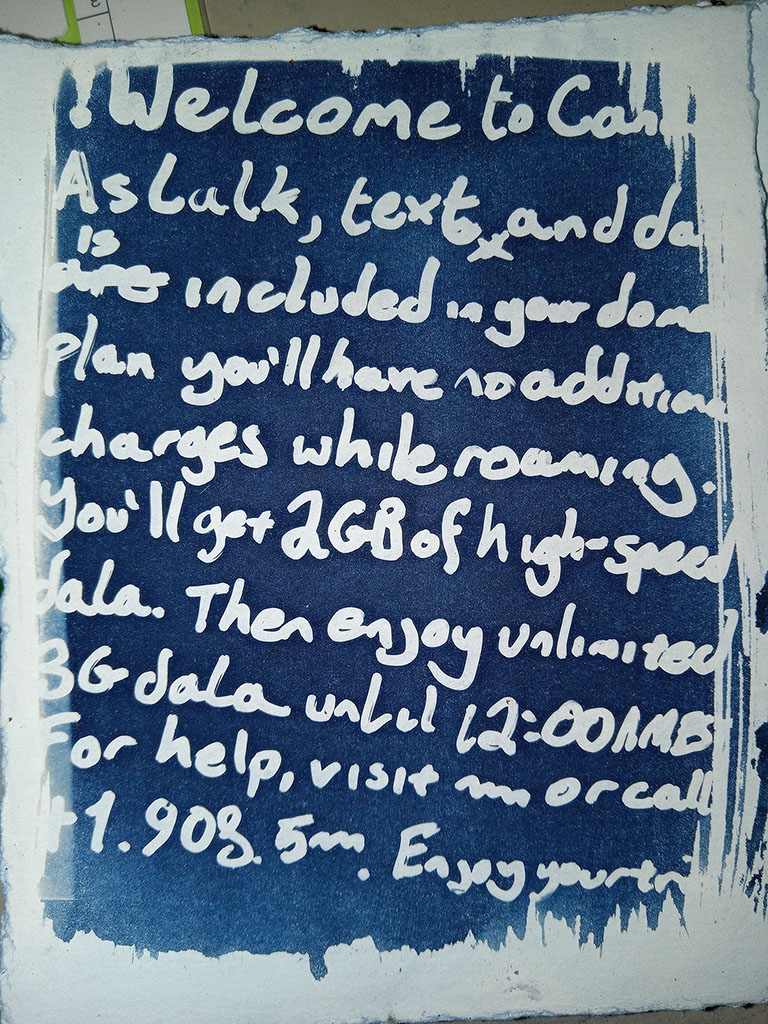 !Welcome to Can
As talk, text, and da
is
are included in your dome
plan you'll have no additiona
charges while roaming.
You'll get 2GB of high-speed
data. Then enjoy unlimited
3G data until 12:00AM
For help, visit or call
+1.908. 5 . Enjoy your tri